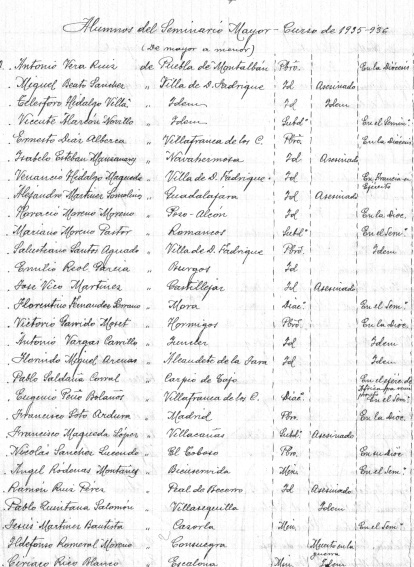 Alumnos del Seminario Mayor - Curso de 1935-936
(De mayor a menor)
Antonio Vera Ruiz de Puebla de Montalbán Pbro. En la Diócesis
Miguel Beato Sánchez " Villa de D. Fadrique Id Asesinado
Telesforo Hidalgo Villa " Idem Id Idem
Vicente Alardón Novillo " Idem Subd.º En el Semin.º
Ernesto Díaz Alberca " Villafranca de los C. Pbro. En la Diócesis
Isabelo Esteban Manzanary " Navahermosa Id Asesinado
Venancio Hidalgo Maqueda " Villa de D. Fadrique Id En Francia
Ejército
Alejandro Martínez " Guadalajara Id Asesinado
Horacio Moreno Moreno " Pozo-Alcon Id En la Dioc.
Mariano Moreno Pastor " Romancos Subd.º En el Sem.º
Salustiano Santos Aguado " Villa de D. Fadrique Pbro. Idem
Emilio Reol " Burgos Id
José Vico Martínez " Castilléjar Id Asesinado
Florentino Fernández Serrano " Mora Diác.º En el Sem.º
Victorio Garrido Moset " Hormigos Pbro. En la Dioc.
Antonio Vargas Carrillo " Id Idem
Florindo Miguel Arenas " Alcaudete de la Jara Id Idem
Pablo Saldaña Corral " Carpio de Tajo En el
Eugenio Peño Bolaños " Villafranca de los C. Diác. En el Sem.º
Francisco Soto Ardura " Madrid Pbro. En la Dioc
Francisco Maqueda López " Villacañas Subd.º Asesinado
Nicolás Sánchez Lucendo " El Toboso Pbro. En su Dioc
Angel Ródenas Montañés " Bienservida Men. En el Sem.º
Ramón Ruiz Pérez " Peal de Becerro Id Asesinado
Pablo Quintana Salomón " Villasequilla Idem
Jesús Martínez Bautista " Cazorla Men. En el Sem.º
Ildefonso Romeral Moreno " Consuegra Muerto en la
guerra
Ciriaco Rico Blanco " Escalona Min. Idem